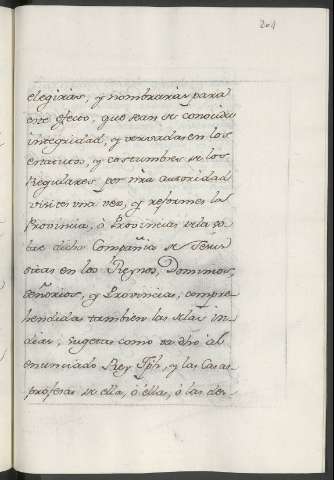 204
elegirás, y nombrarás para
este efecto, que sean de conocida
integridad, y versadas en los
estatutos, y costumbres de los
Regulares, por nra autoridad
visites una vez, y reformes la
Provincia, ò Provincias de la
dicha Compañia de Jesui
tas en los Reynos, Dominios,
señorios, y Provincias, compre-
hendidas tambien las Islas in-
dias, sugetas como va dho al
enunciado Rey Jph, y las Casas
profesas de ella, ó ellas, ó las de